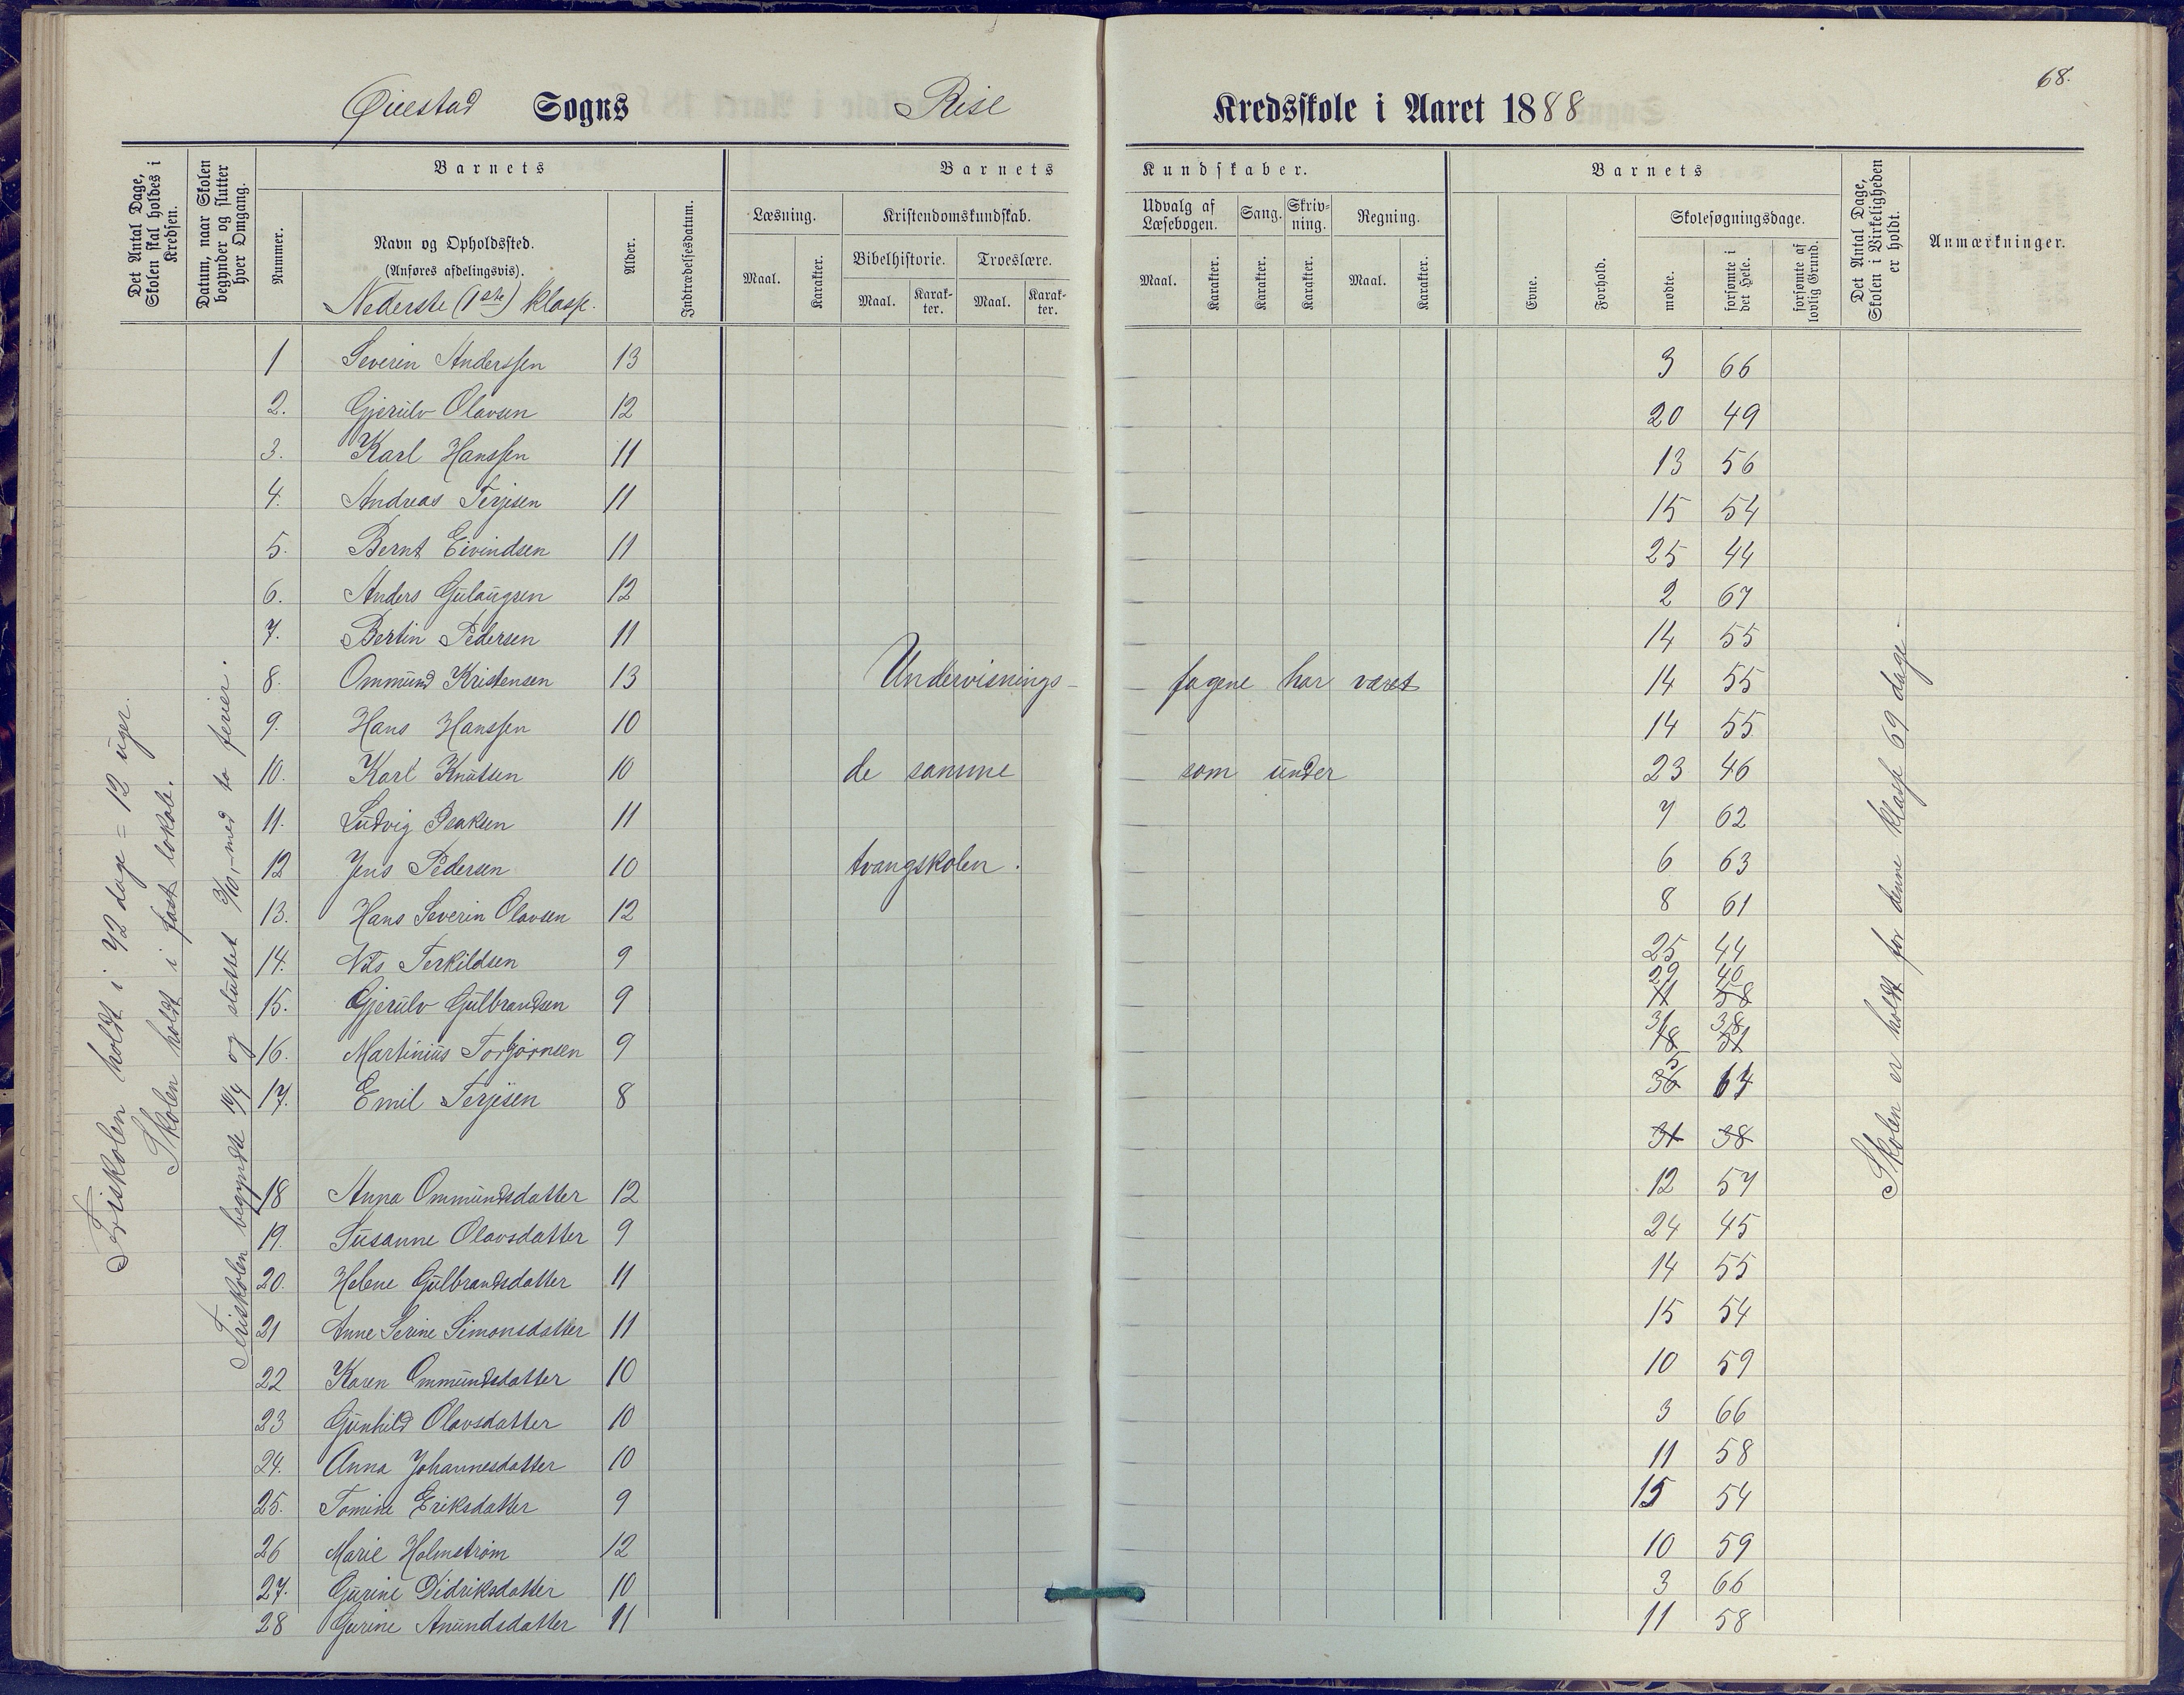 68.
Øiestad Sogns Rise Kredsskole i Aaret 1888
Det Antal Dage, Skolen skal holdes i Kredsen.
Datum, naar Skolen begynder og slutter hver Omgang.
Barnets
Nummer.
Navn og Opholdssted.
(Anføres afdelingsvis).
Nederste (1ste) klasse.
Alder.
Indtrædelsesdatum.
Barnets Kundskaber.
Læsning.
Maal.
Karakter.
Kristendomskundskab.
Bibelhistorie.
Maal.
Karak-
ter.
Troeslære.
Maal.
Karak-
ter.
Udvalg af Læsebogen.
Maal.
Karakter.
Sang.
Karakter.
Skriv-
ning.
Karakter.
Regning.
Maal.
Karakter.
Barnets
Evne.
Forhold.
Skolesøgningsdage.
mødte.
forsømte i det Hele.
forsømte af lovlig Grund.
Det Antal Dage, Skolen i Virkeligheden er holdt.
Anmærkninger.
Friskolen holdt i 72 dage = 12 uger.
Skolen holdt i fast lokale.
Friskolen begyndte 10/4 og sluttet 3/10, med to ferier.
1 Severin Anderssen 13 3 66
2. Gjerulv Olavsen 12 20 49
3. Karl Hanssen 11 13 56
4. Andreas Terjesen 11 15 54
5. Bernt Eivindsen 11 25 44
6. Anders Gulaugsen 12 2 67
7. Bertin Pedersen 11 14 55
8. Ommund Kristensen 13 Undervisnings- fagene har været 14 55
9. Hans Hanssen 10 14 55
10. Karl Knutsen 10 de samme som under 23 46
11. Ludvig Isaksen 11 7 62
12 Jens Pedersen 10 tvangskolen. 6 63
13. Hans Severin Olavsen 12 8 61
14. Nils Terkildsen 9 25 44
29 40
15. Gjerulv Gulbrandsen 9 11 58
31 38
16. Martinius Torbjørnsen 9 18 51
5
17. Emil Terjesen 8 36 64
31 38
18 Anna Ommundsdatter 12 12 57
19. Susanne Olavsdatter 9 24 45
20. Helene Gulbrandsdatter 11 14 55
21 Anne Serine Simonsdatter 11 15 54
22 Karen Ommundsdatter 10 10 59
23 Gunhild Olavsdatter 10 3 66
24. Anna Johannesdatter 10 11 58
25. Tomine Eriksdatter 9 15 54
26 Marie Holmstrøm 12 10 59
27. Gurine Didriksdatter 10 3 66
28 Gurine Anundsdatter 11 11 58
Skolen er holdt for denne klasse 69 dage.